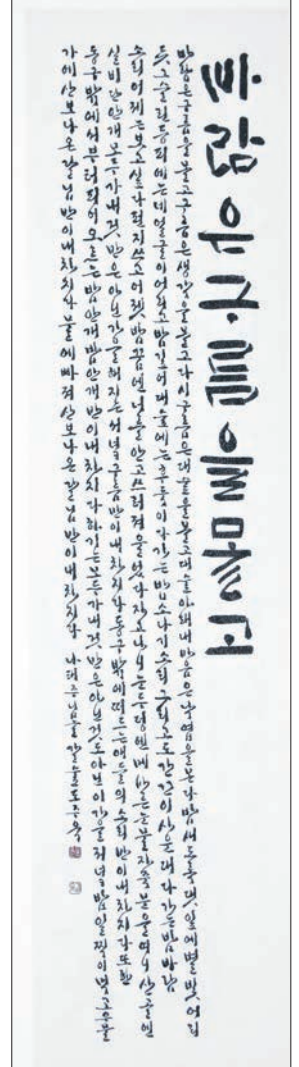 바람이 구름을 몰고
바람은 구름을 몰고 구름은 생각을 몰고 다시 구름은 대숲을 몰고 대숲 아래 내 마음은 낙엽을 몬다 밤새도록 댓잎에 별빛 어리
듯 그슬린 등피에는 네 얼굴이 어리고 밤 깊어 대숲에는 후둑이다 가는 밤 소나기 소리 그리고도 간간이 사운대다 가는 밤바람
소리 어제는 보고 싶다 편지 쓰고 어젯밤 꿈엔 너를 안고 쓰러져 울었다 자고 나니 눈두덩엔 메마른 눈물자죽 문을 여니 산골엔
실비단 안개 모두가 내 것만은 아닌 가을 해 지는 서녘구름만이 내 차지다 동구 밖에 떠드는 애들의 소리만이 내 차지다 또한
동구 밖에서부터 피어오르는 밤안개 밤안개만이 내 차지다 하기는 모두가 내 것만은 아닌 것도 아닌 이 가을 저녁밥 일찍이 먹고 우물
가에 산보 나온 달님만이 내 차지다 물에 빠져 산보 나온 달님만이 내 차지다 나태주님 글